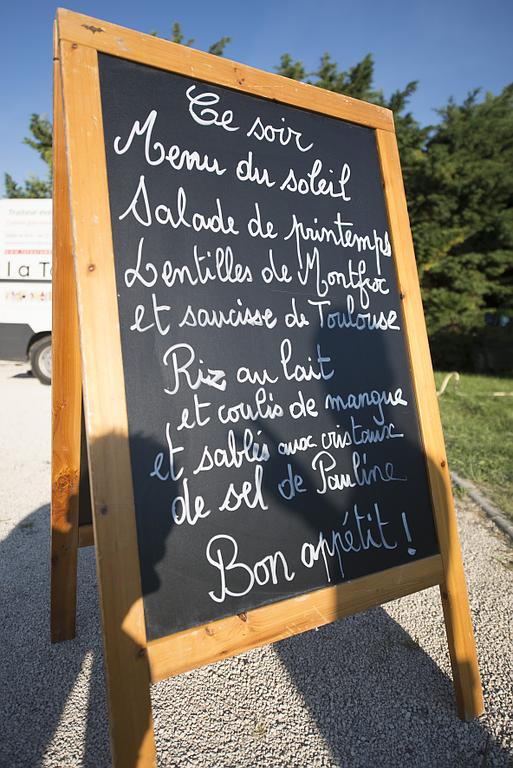 Ce soir
Menu du soleil
Salade de printemps
Lentilles de Montfroc
et saucisse de Toulouse
Riz au lait
et coulis de mangue
et sablés aux cristaux
de sel de Pauline
Bon appétit !
la T